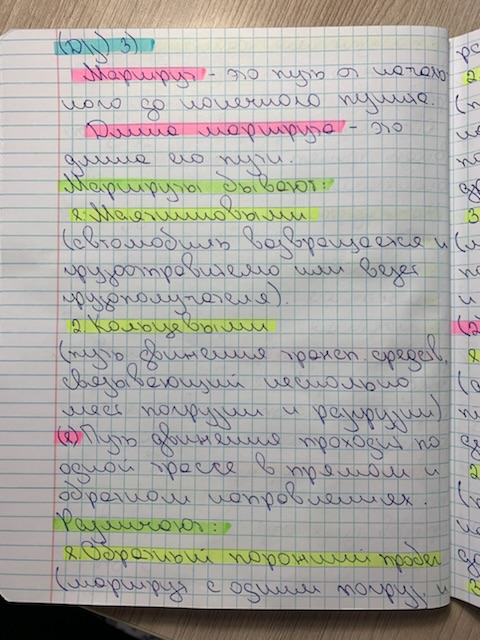 (Д/у 3)
Маршрут - это путь от началь
ного до конечного пункта.
Длина маршрута - это
длина его пути.
Маршруты бывают:
1. Маятниковыми
(автомобиль возвращается к
грузоотправителю или везет
грузополучателя).
2. Кольцевыми
(путь движения трансп. средств,
связывающий несколько
мест погрузки и разгрузки)
(1) Путь движения проходит по
одной трассе в прямом и
обратном направлениях.
Различают:
1. Обратный порожний пробег
(маршрут с одним погруз. и